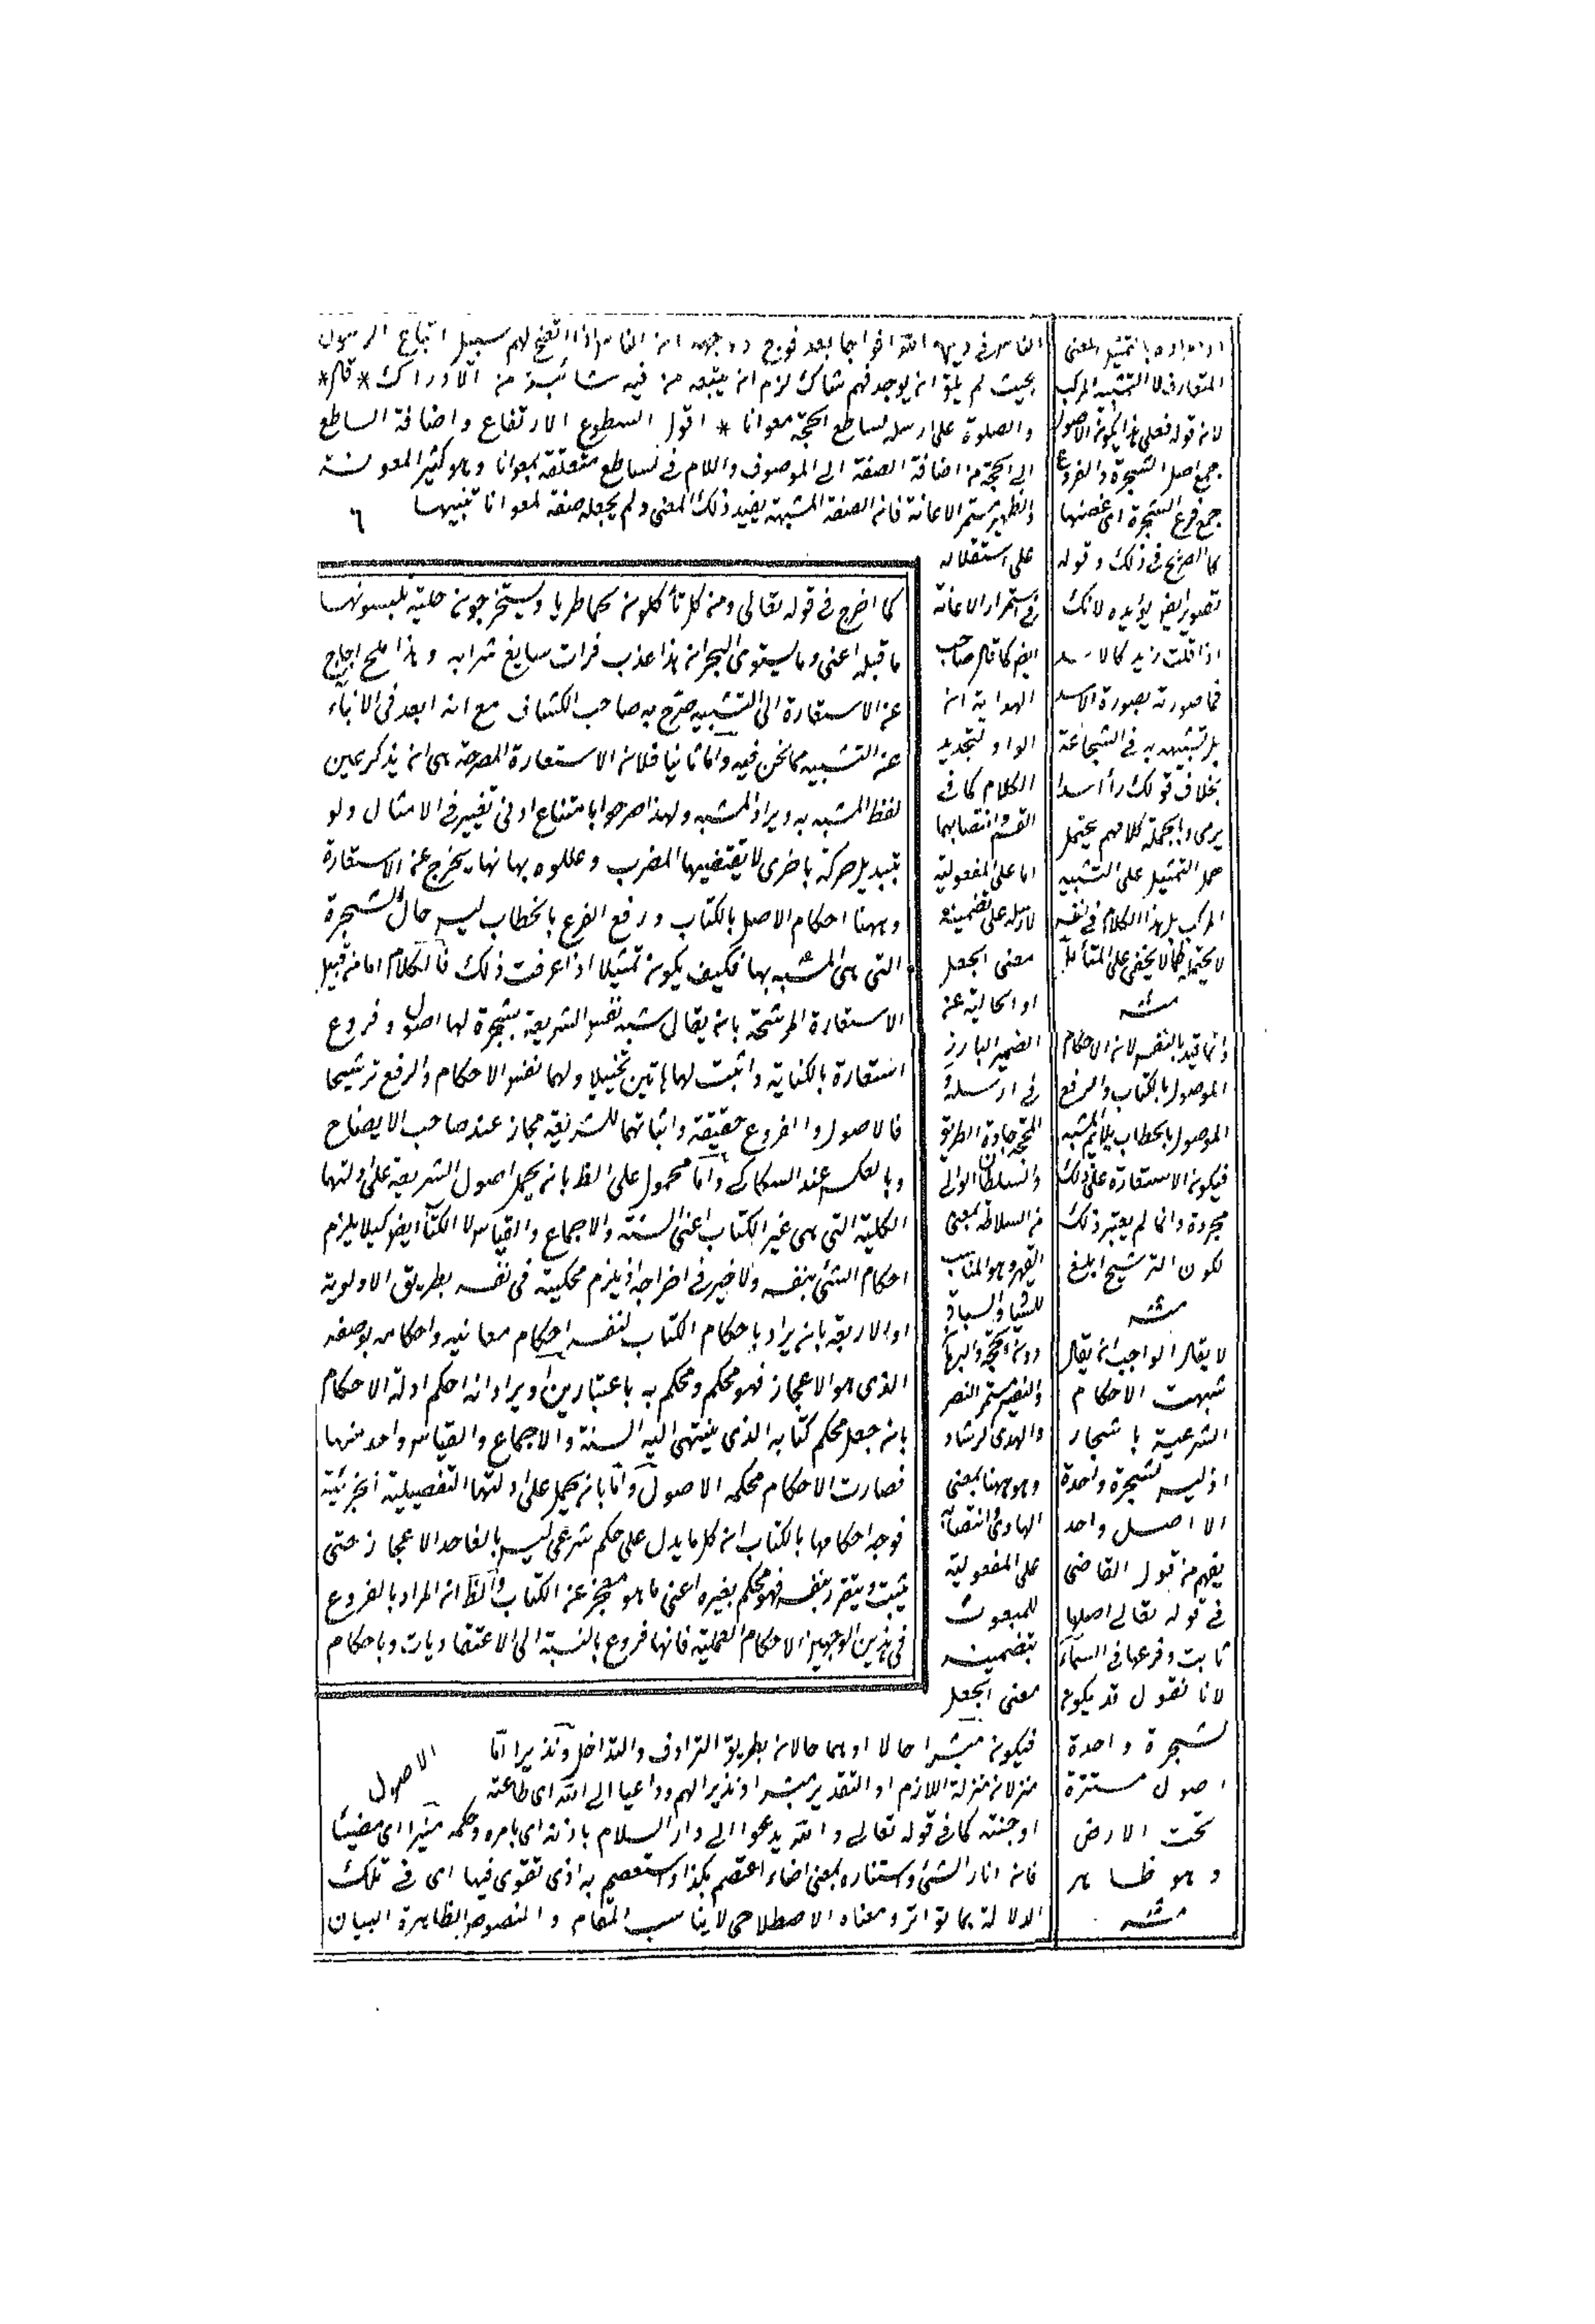 الناس في دين الله افواجا بعد فوج ووجهه ان الناس اذا اتضح لهم سبيل اتباع الرسول
بحيث لم يبق ان يوجد فيهم شاك لزم ان يتبعه من فيه شائبة من الادراك * قال *
والصلوة على ارسله لساطع الحجة معوانا * اقول السطوع الارتفاع واضافة الساطع
الى الحجة من اضافة الصفة الى الموصوف واللام في لساطع متعلقة بمعوانا وهو كثير المعونة
والظهير مستمر الاعانة فان الصفة المشبهة يفيد ذلك المعنى ولم يجعله صفة لمعوانا تنبيها
على استقلاله
في استمرار الاعانة
ايض كما قال صاحب
الهداية ان
الواو لتجديد
الكلام كما في
القسم وانتصابهما
اما على المفعولية
لارسله على تضمينه
معنى الجعل
او الحالية عن
الضمير البارز
في ارسله
المحجة جادة الطريق
والسلطان الوالي
من السلاطة بمعنى
القهر وهو المناسب
للسياق والسباق
دون الحجة والبرهان
والنصير مستمر النصر
والهدى الرشاد
وهو ههنا بمعنى
الهادي وانتصابه
على المفعولية
للمبعوث
بتضمينه
معنى الجعل
فيكون مبشرا حالا او هما حالان بطريق الترادف والتداخل ونذيرا اما
منزلان منزلة اللازم او التقدير مبشرا ونذيرا لهم وداعيا الى الله اى طاعته
او جنته كما في قوله تعالى والله يدعوا الى دار السلام باذنه اى بامره وحكمه منيرا اى مضيئا
فان انار الشئ واستناره بمعنى اضاء اعتصم بكذا واستعصم به اذى تقوى فيها اى في تلك
الدلالة بما تواتر ومعناه الاصطلاحي لا يناسب المقام والنصوص الظاهرة البيان
كما اخرج في قوله تعالى ومن كل تأكلون لحما طريا وتستخرجون حلية تلبسونها
ما قبله اعنى وما يستوى البحران هذا عذب فرات سايغ شرابه وهذا ملح اجاج
عن الاستعارة الى التشبيه صرح به صاحب الكشاف مع انه ابعد في الانباء
عن التشبيه مما نحن فيه واما ثانيا فلان الاستعارة المصرحة هى ان يذكر بعين
لفظ المشبه به ويراد المشبه ولهذا صرحوا بامتناع ادنى تغيير في الامثال ولو
بتبديل حركة باخرى لا يقتضيها المضرب وعللوه بانها يخرج عن الاستعارة
وههنا احكام الاصل بالكتاب ورفع الفرع بالخطاب ليس حال الشجرة
التى هى المشبه بها فكيف يكون تمثيلا اذا عرفت ذلك فالكلام اما من قبيل
الاستعارة المرشحة بان يقال شبه نفس الشريعة بشجرة لها اصول وفروع
استعارة بالكناية واثبت لها هاتين تخييلا ولهما نفس الاحكام والرفع ترشيحا
فالاصول والفروع حقيقة واثباتهما للشريعة مجاز عند صاحب الايضاح
وبالعكس عند السكاكي واما محمول على الظ بان يحمل اصول الشريعة على ادلتها
الكلية التى هى غير الكتاب اعنى السنة والاجماع والقياس لا الكتاب ايض كيلا يلزم
احكام الشئ بنفسه ولا خير في اخراجه اذ يلزم محكميته في نفسه بطريق الاولوية
او الاربعة بان يراد باحكام الكتاب لنفسه احكام معانيه واحكامه بوصفه
الذى هو الاعجاز فهو محكم ومحكم به باعتبارين او يراد انه احكم ادلة الاحكام
بان جعل محكم كتابه الذى ينتهى اليه السنة والاجماع والقياس واحد منها
فصارت الاحكام محكمه الاصول واما بان يحمل على ادلتها التفصيلية الجزئية
فوجه احكامها بالكتاب ان كل ما يدل على حكم شرعى ليس بالغا حد الاعجاز حتى
يثبت ويتقرر بنفسه فهو محكم بغيره اعنى ما هو معجز عن الكتاب والظ ان المراد بالفروع
في هذين الوجهين الاحكام العملية فانها فروع بالنسبة الى الاعتقاديات وباحكام
الاصول
المتعارف لا التشبيه المركب
لان قوله فعلى هذا يكون الاصول
جمع اصل الشجرة والفروع
جمع فرع الشجرة اى غصنها
كما الصريح في ذلك وقوله
تصوير ايض يؤيده لانك
اذا قلت زيد كالاسد
فما صورته بصورة الاسد
بل تشبيهه به في الشجاعة
بخلاف قولك رأ اسدا
يرمى وبالجملة كلامهم يحتمل
حمل التمثيل على التشبيه
المركب بل هذا الكلام في نفسه
لا يحتمله كما لا يخفى على المتأمل
منه
وانما قيد بالنفس لان الاحكام
الموصول بالكتاب والرفع
الموصول بالخطاب يلائم المشبه
فيكون الاستعارة على ذلك
مجردة وانما لم يعتبر ذلك
لكون الترشيح ابلغ
منه
لا يقال الواجب ان يقال
شبهت الاحكام
الشرعية باشجار
اذ ليس لشجرة واحدة
الا اصل واحد
يفهم من قول القاضى
في قوله تعالى اصلها
ثابت وفرعها في السماء
لانا نقول قد يكون
لشجرة واحدة
اصول مستترة
تحت الارض
وهو ظاهر
منه